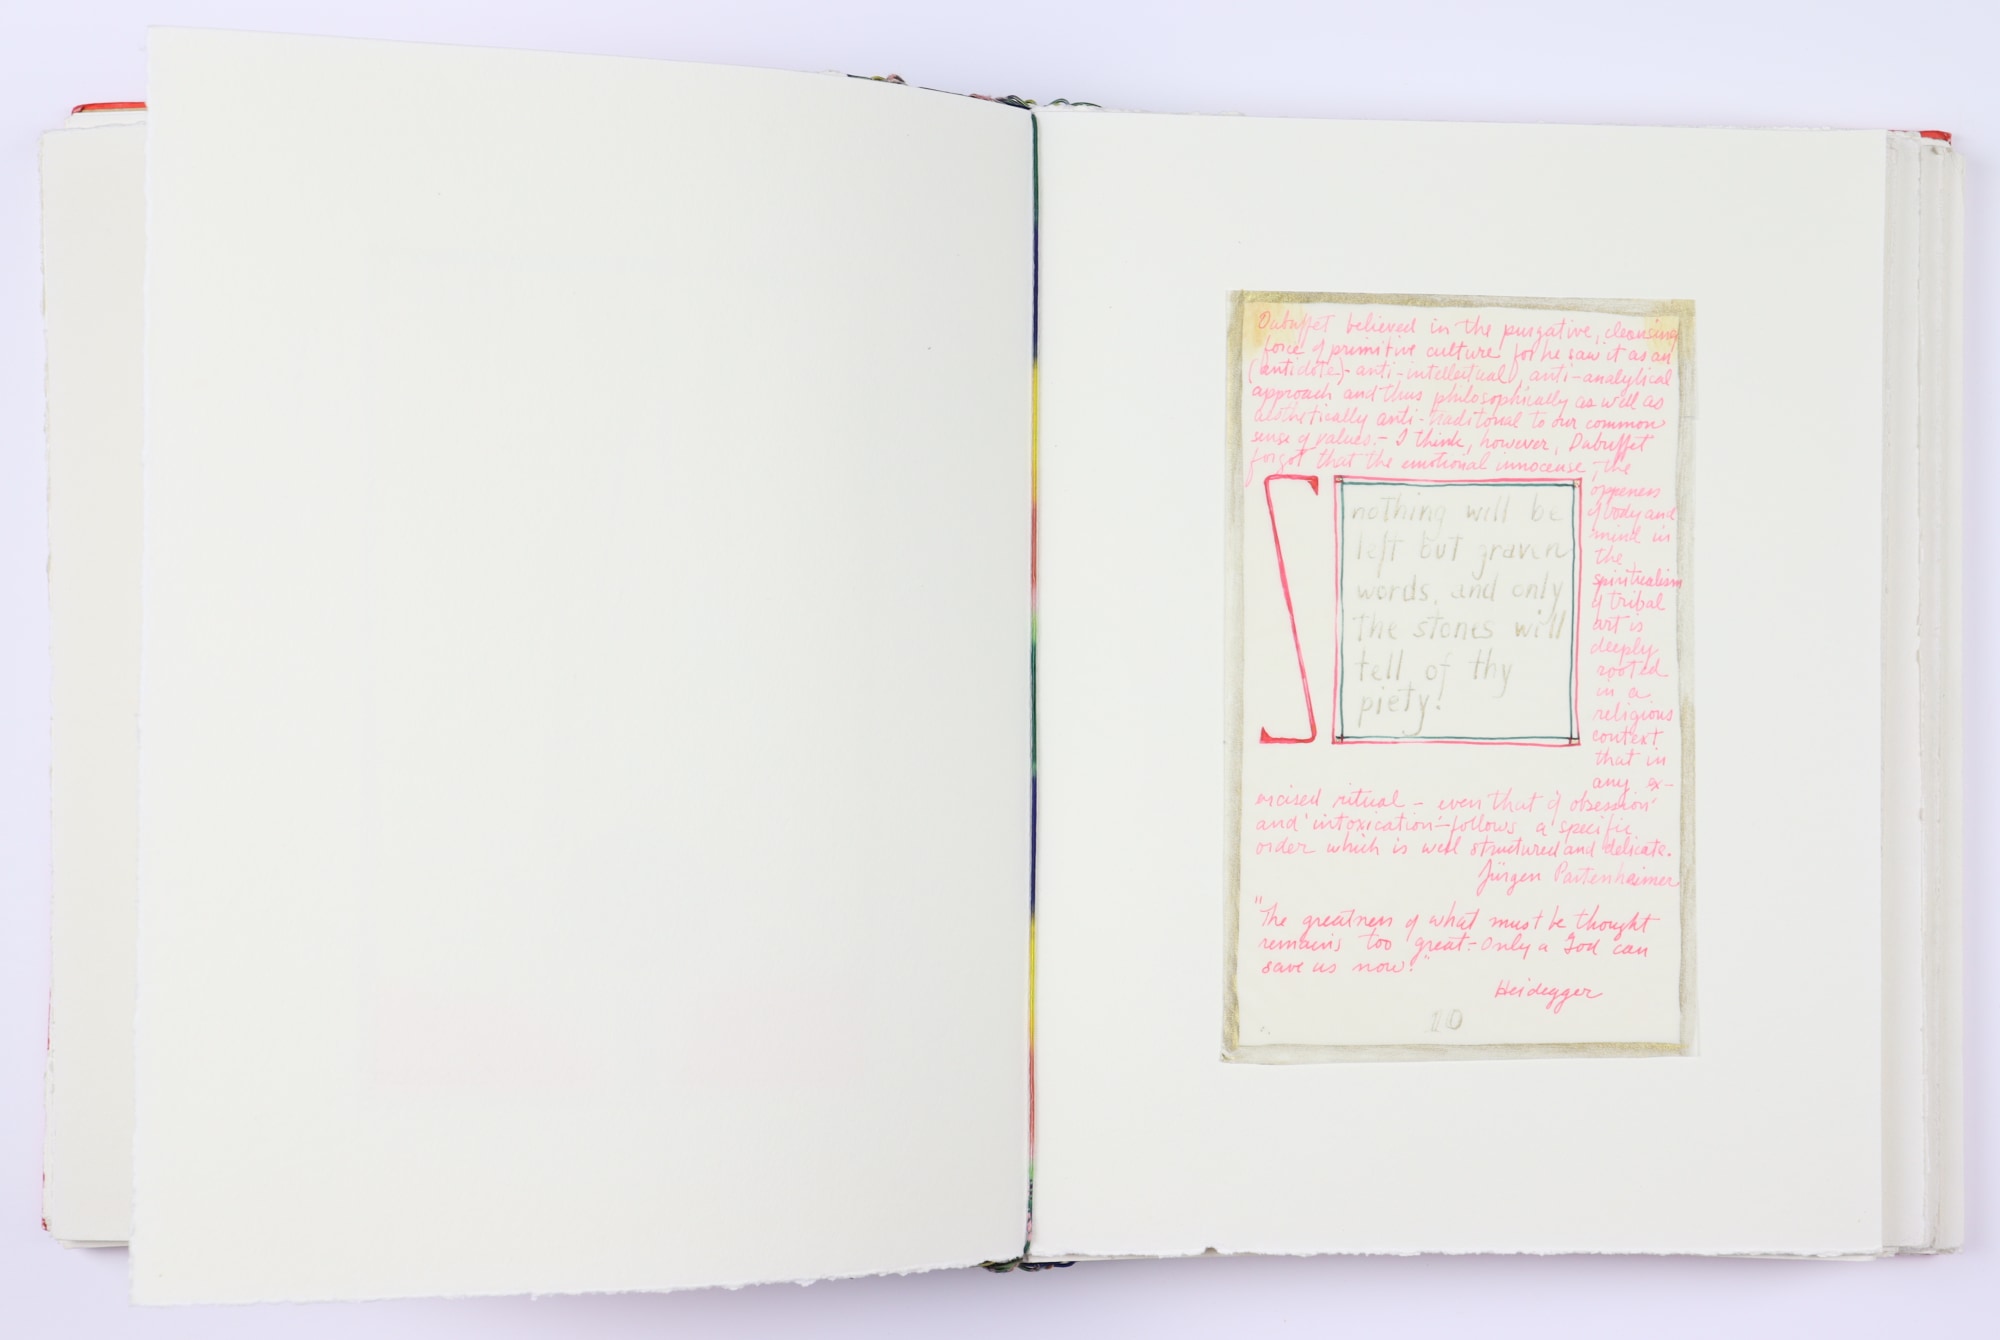 Dubuffet believed in the purgative, cleansing
force of primitive culture for he saw it as an
(antidote)- anti-intellectual, anti-analytical
approach and thus philosophically as well as
aesthetically anti-traditonal to our common
sense of values. - I think, however, Dubuffet
forgot that the emotional innocense, the
oppeness
of body and
mind in
the
spiritualism
of tribal
art is
deeply
rooted
in a
religious
context
that in
any ex-
ercised ritual - even that of 'obsession'
and 'intoxication' - follows a specific
order which is well structured and delicate.
Jürgen Partenheimer
nothing will be
left but graven
words, and only
the stones will
tell of thy
piety!
"The greatness of what must be thought
remains too great - Only a God can
save us now."
Heidegger
10